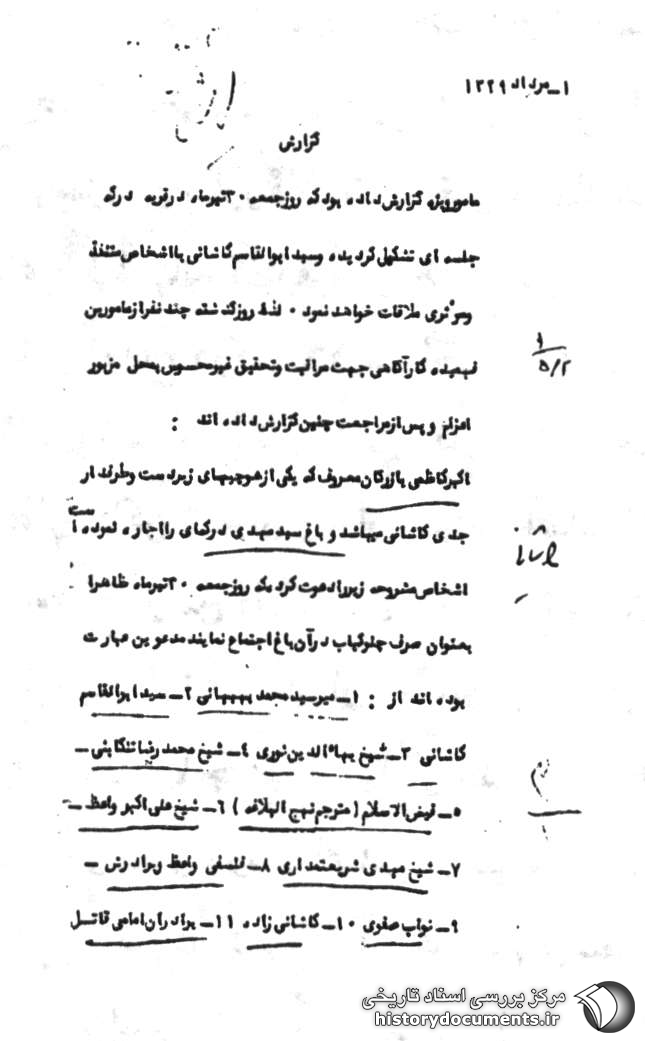 ۱ـ مرداد ۱۳۲۹
گزارش
مامورویژه گزارش داده بود که روزجمعه ۳۰ تیرماه در قریه درکه
جلسه ای تشکیل گردیده وسید ابوالقاسم کاشانی بااشخاص متنفذ
وموثری ملاقات خواهد نمود ۰ لذا روزگذشته چند نفرازمامورین
فهمیده کارآگاهی جهت مراقبت وتحقیق غیرمحسوس بمحل مزبور
اعزام وپس ازمراجعت چنین گزارش داده اند :
اکبرکاظمی بازرگان معروف که یکی ازهوچیهای زبردست وطرفدار
جدی کاشانی میباشد و باغ سید مهدی درکه‌ای رااجاره نموده است
اشخاص مشروحه زیررادعوت کرد که روزجمعه ۳۰ تیرماه ظاهرا
بعنوان صرف چلوکباب درآن باغ اجتماع نمایند مدعوین عبارت
بوده اند از : ۱ـ میرسید محمد بهبهانی ۲ـ سید ابوالقاسم
کاشانی ۳ـ شیخ بهاءالدین نوری ۴ـ شیخ محمد رضا تنکابنی ـ
۵ـ فیض الاسلام (مترجم نهج البلاغه) ۶ـ شیخ علی اکبر واعظ ـ
۷ـ شیخ مهدی شریعتمداری ۸ـ فلسفی واعظ وبرادرش ـ
۹ـ نواب صفوی ۱۰ـ کاشانی زاده ۱۱ـ برادران امامی قاتل
مرکز بررسی اسناد تاریخی
historydocuments.ir